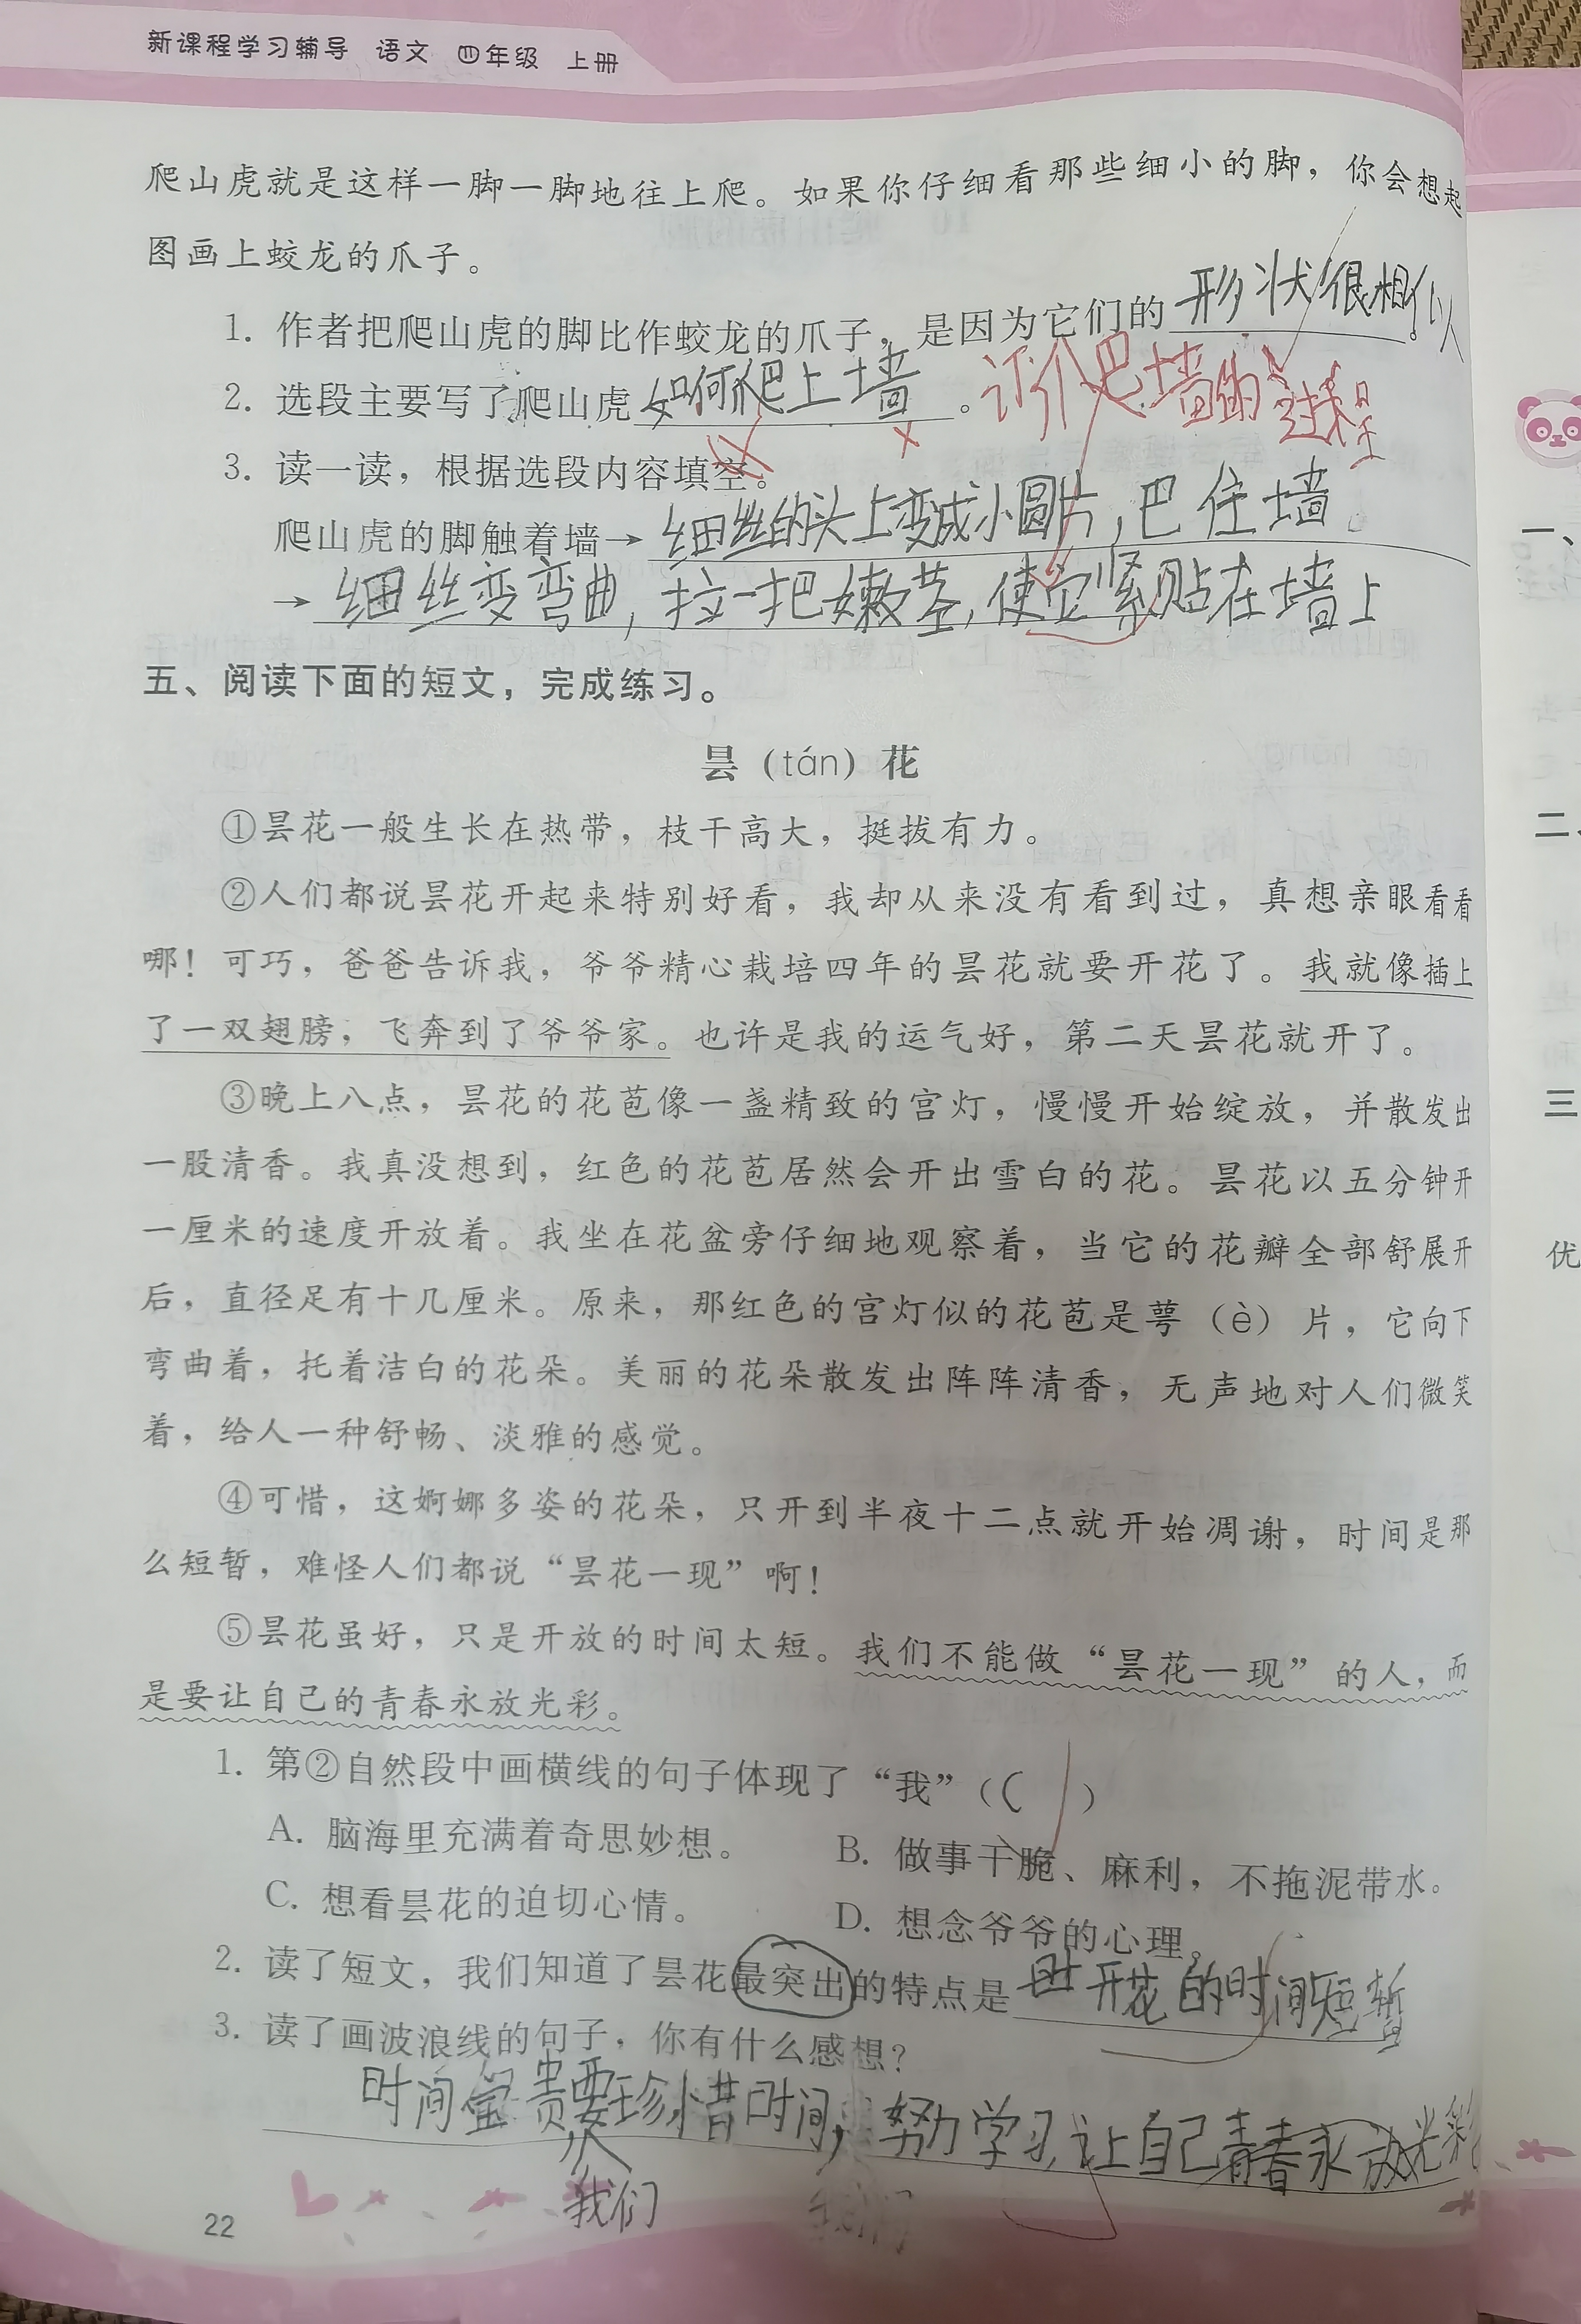 新课程学习辅导 语文 四年级 上册
爬山虎就是这样一脚一脚地往上爬。如果你仔细看那些细小的脚，你会想起
图画上蛟龙的爪子。
1. 作者把爬山虎的脚比作蛟龙的爪子，是因为它们的形状很相似。
2. 选段主要写了爬山虎如何爬上墙。
爬墙的过程
3. 读一读，根据选段内容填空。
爬山虎的脚触着墙→细丝的头上变成小圆片，巴住墙
→细丝变弯曲，拉一把嫩茎，使它紧贴在墙上
五、阅读下面的短文，完成练习。
昙（tán）花
①昙花一般生长在热带，枝干高大，挺拔有力。
②人们都说昙花开起来特别好看，我却从来没有看到过，真想亲眼看看
哪！可巧，爸爸告诉我，爷爷精心栽培四年的昙花就要开花了。我就像插上
了一双翅膀，飞奔到了爷爷家。也许是我的运气好，第二天昙花就开了。
③晚上八点，昙花的花苞像一盏精致的宫灯，慢慢开始绽放，并散发出
一股清香。我真没想到，红色的花苞居然会开出雪白的花。昙花以五分钟开
一厘米的速度开放着。我坐在花盆旁仔细地观察着，当它的花瓣全部舒展开
后，直径足有十几厘米。原来，那红色的宫灯似的花苞是萼（è）片，它向下
弯曲着，托着洁白的花朵。美丽的花朵散发出阵阵清香，无声地对人们微笑
着，给人一种舒畅、淡雅的感觉。
④可惜，这婀娜多姿的花朵，只开到半夜十二点就开始凋谢，时间是那
么短暂，难怪人们都说“昙花一现”啊！
⑤昙花虽好，只是开放的时间太短。我们不能做“昙花一现”的人，而
是要让自己的青春永放光彩。
1. 第②自然段中画横线的句子体现了“我”（C）
A. 脑海里充满着奇思妙想。 B. 做事干脆、麻利，不拖泥带水。
C. 想看昙花的迫切心情。 D. 想念爷爷的心理。
2. 读了短文，我们知道了昙花最突出的特点是开花的时间短暂
3. 读了画波浪线的句子，你有什么感想？
时间宝贵要珍惜时间，努力学习，让自己青春永放光彩
我们
22
一、
二、
三
优